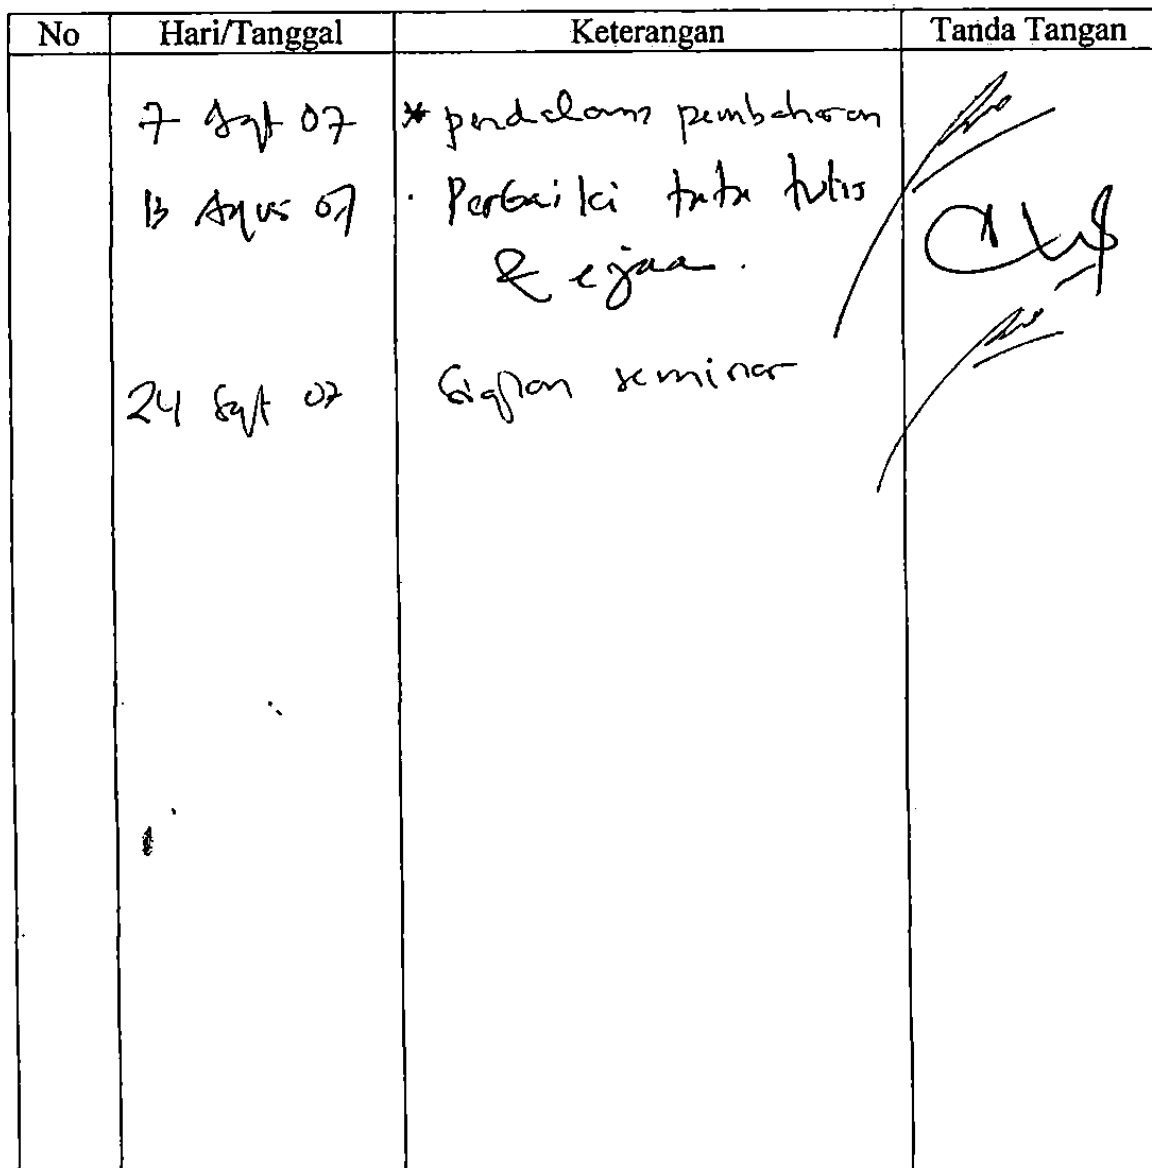 No Hari/Tanggal Keterangan Tanda Tangan
7 Sept 07 * perdalam pembahasan
13 Agus 07 . Perbaiki tata tulis
& ejaan.
24 Sept 07 Siapkan seminar